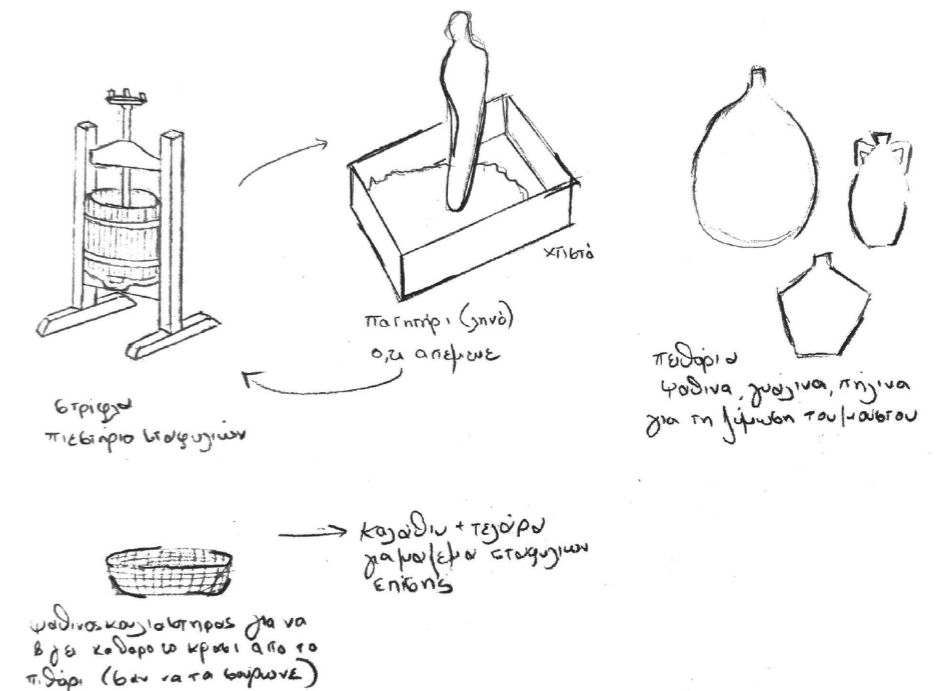 χτιστό
πατητήρι (ληνό)
ό,τι απέμεινε
στρίφλα
πιεστήριο σταφυλιών
πιθάρια
ψάθινα, γυάλινα, πήλινα
για τη ζύμωση του μούστου
καλάθια + τελάρα
για μάζεμα σταφυλιών
επίσης
ψάθινος καλαστηρας για να
βγει καθαρό το κρασί από το
πιθάρι (σαν να τα σούρωνε)